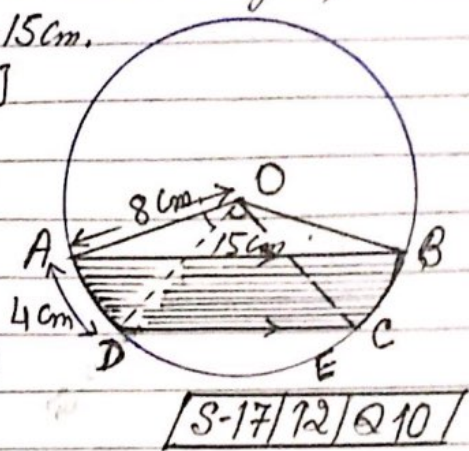 15cm.
]
O
8cm
15cm
A
B
4cm
D
C
E
S-17/12/Q10